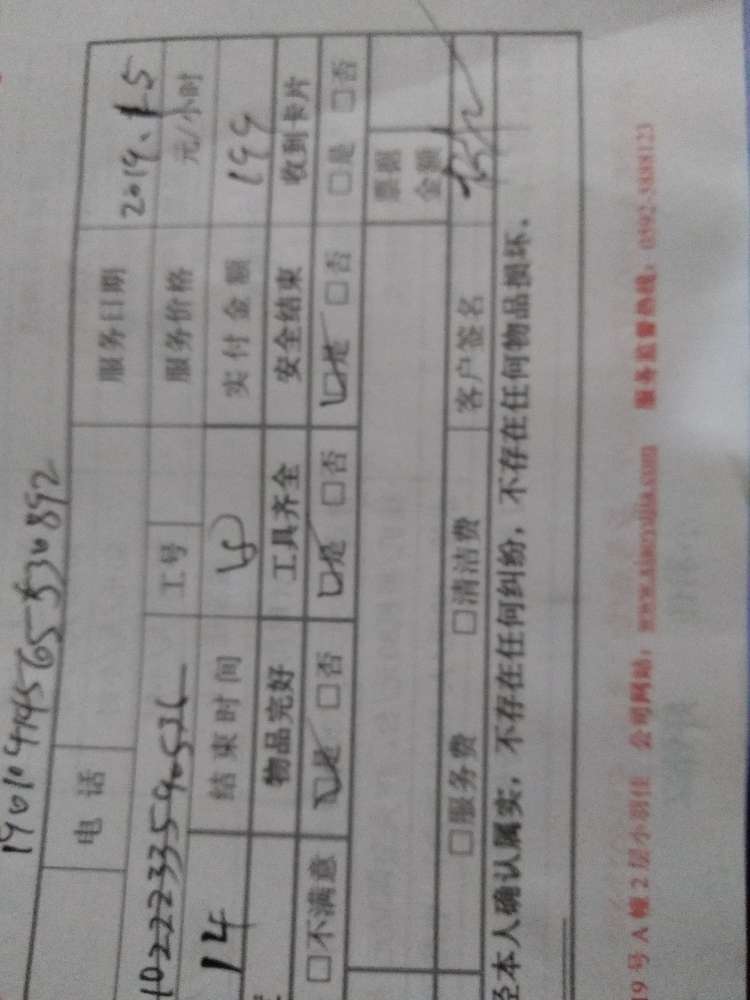 190109414565530892
电话
服务日期 2019.1.5
1022233590526 工号 服务价格 元/小时
14 结束时间 实付金额 199
物品完好 工具齐全 安全结束 收到卡片
□不满意 □是 □否 □是 □否 □是 □否 □是 □否
票据金额
□服务费 □清洁费 客户签名
经本人确认属实，不存在任何纠纷，不存在任何物品损坏。
19号A幢2层小羽佳 公司网站：www.xiaoyujia.com 服务监督热线：0592-3888123